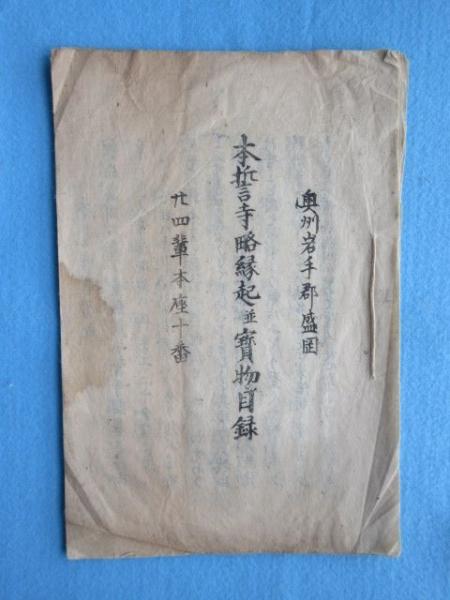 奥州岩手郡盛罡
本誓寺略縁起並寳物目録
廿四輩本座十番